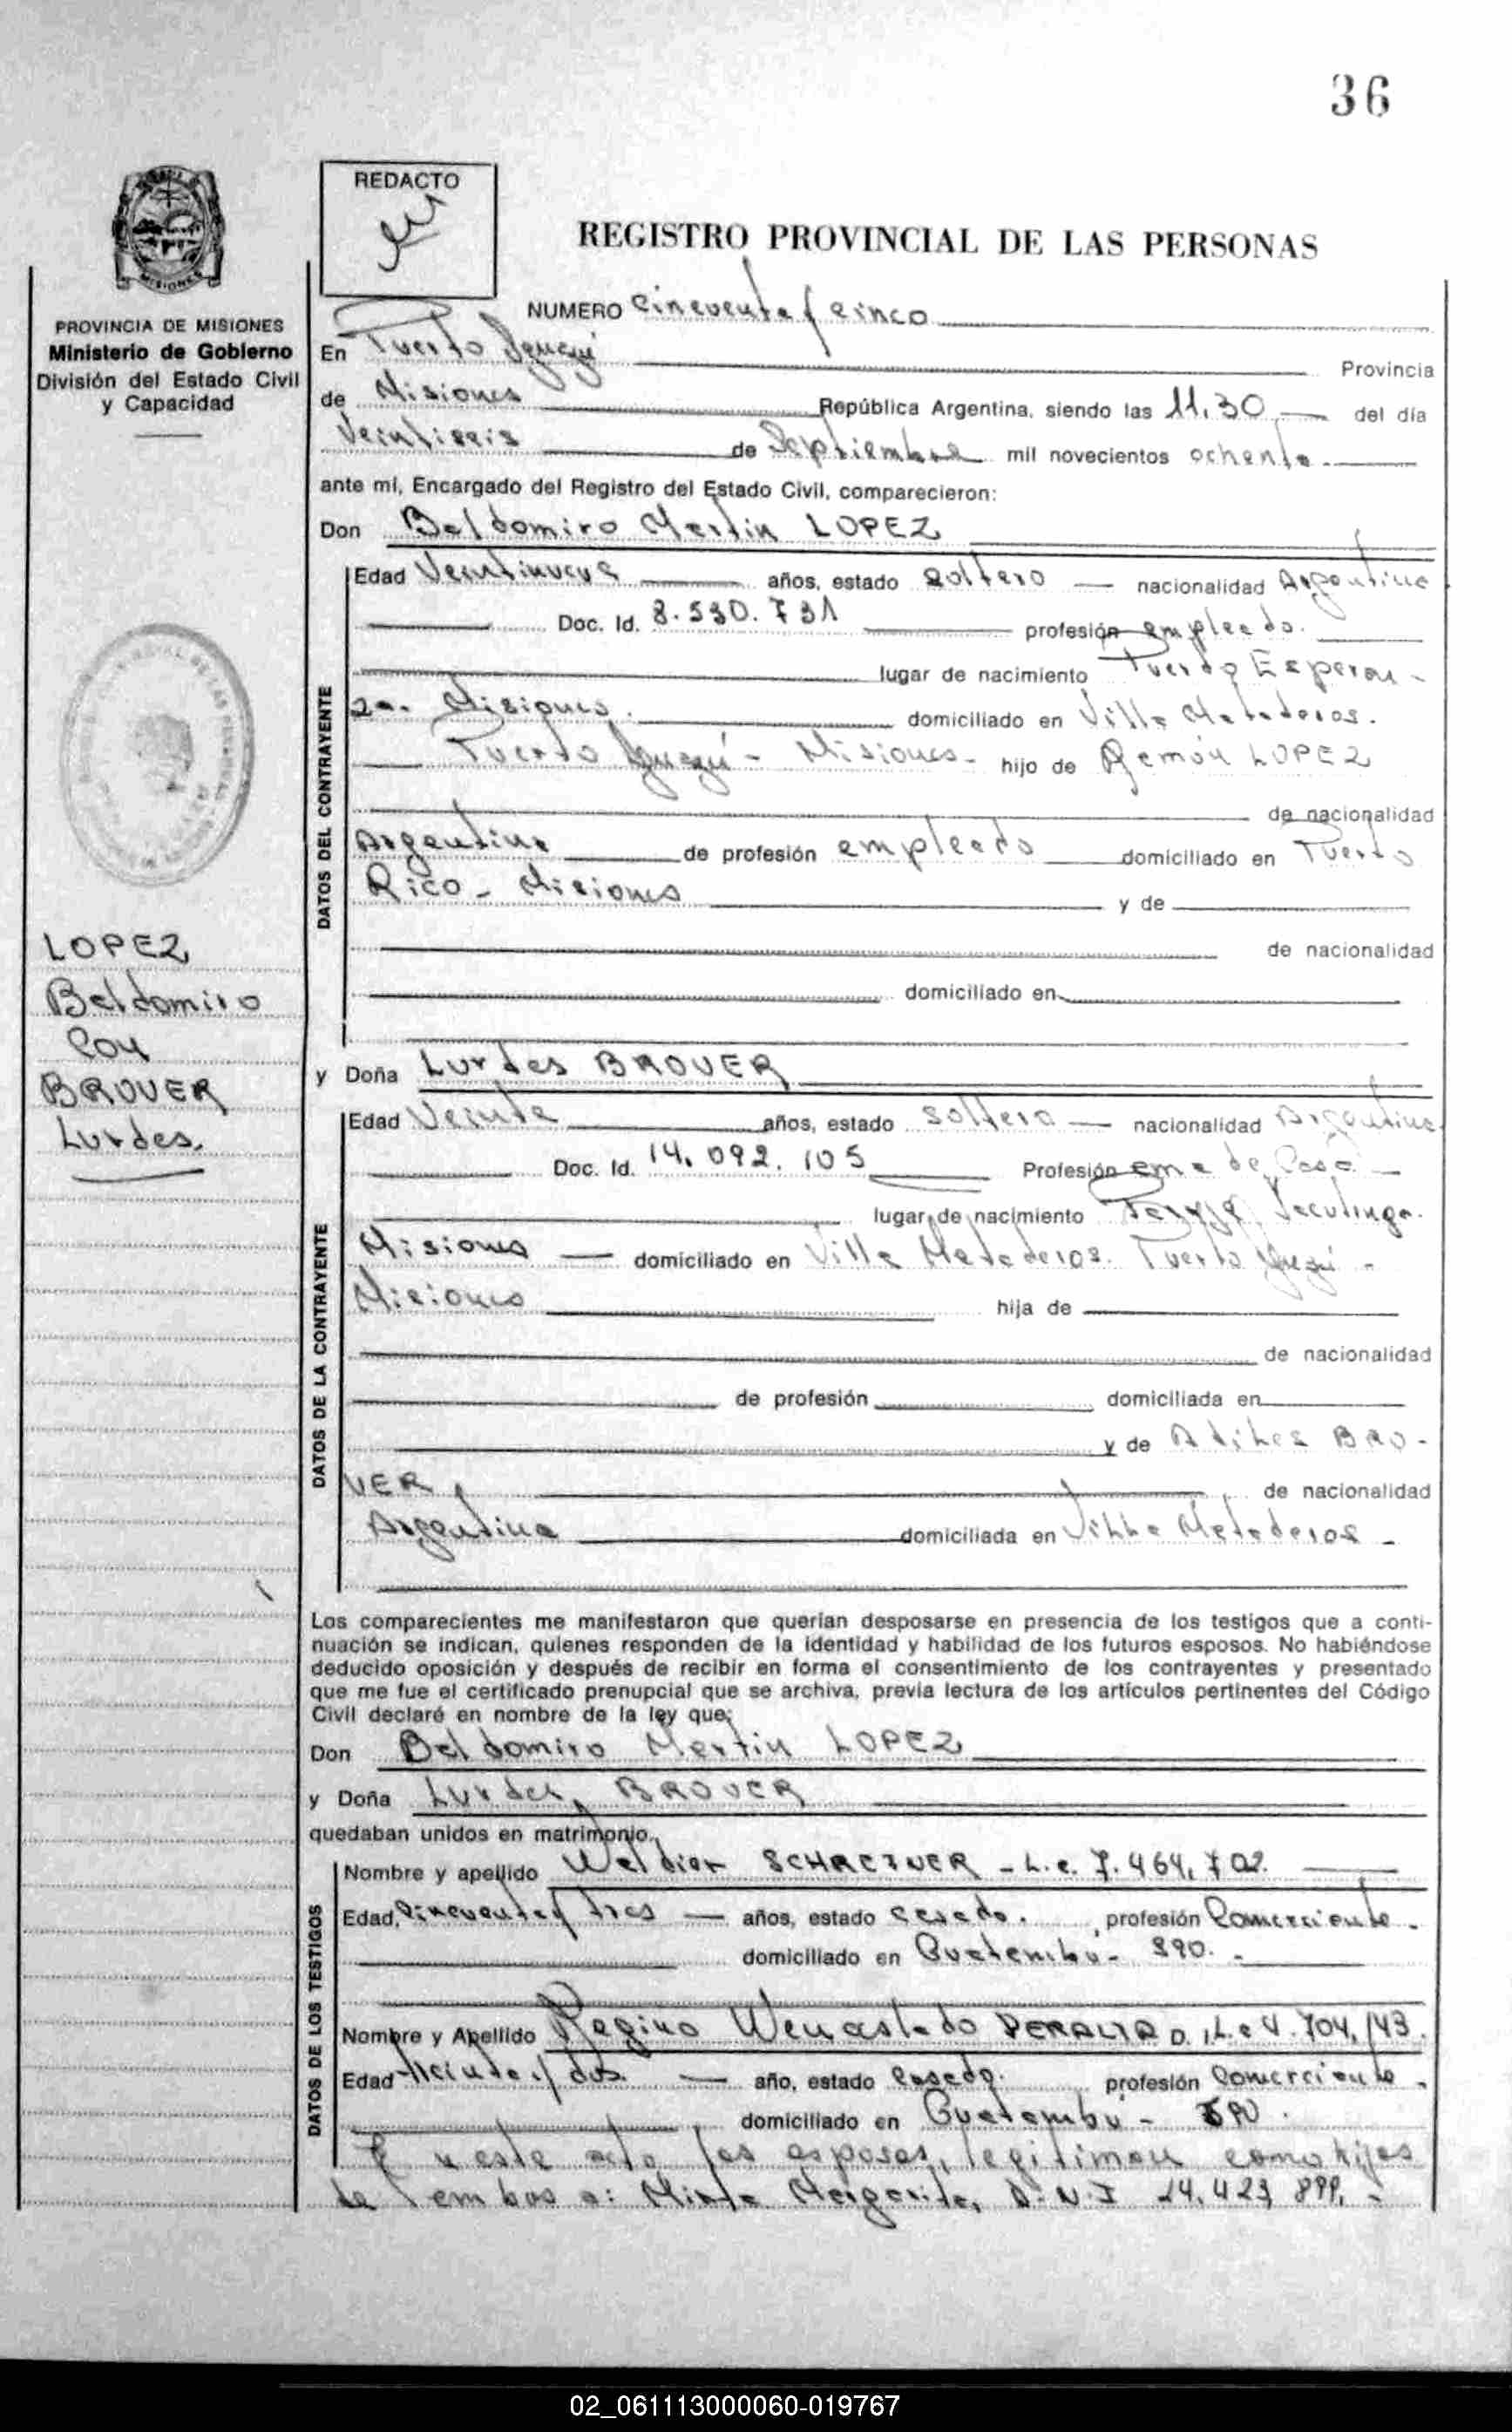 36
REDACTO
REGISTRO PROVINCIAL DE LAS PERSONAS
PROVINCIA DE MISIONES
Ministerio de Gobierno
División del Estado Civil
y Capacidad
NUMERO Cincuenta y cinco
En Puerto Iguazú Provincia
de Misiones República Argentina, siendo las 11.30 del día
Veintiseis de Septiembre mil novecientos ochenta
ante mí, Encargado del Registro del Estado Civil, comparecieron:
Don Beldomiro Martin LOPEZ
DATOS DEL CONTRAYENTE
Edad Veintinueve años, estado soltero nacionalidad Argentina
Doc. Id. 8.530.731 profesión empleado.
lugar de nacimiento Puerto Esperan-
za. Misiones. domiciliado en Villa Mataderos.
Puerto Iguazú - Misiones - hijo de Ramón LOPEZ
de nacionalidad
Argentina de profesión empleado domiciliado en Puerto
Rico - Misiones y de
de nacionalidad
domiciliado en
LOPEZ
Beldomiro
Con
BROVER
Lurdes.
y Doña Lurdes BROVER
DATOS DE LA CONTRAYENTE
Edad Veinte años, estado soltera nacionalidad Argentina
Doc. Id. 14.092.105 Profesión ama de Casa
lugar de nacimiento
Misiones domiciliado en Villa Mataderos. Puerto Iguazú -
Misiones hija de
de nacionalidad
de profesión domiciliada en
y de BRO-
VER, de nacionalidad
Argentina domiciliada en Villa Mataderos -
Los comparecientes me manifestaron que querían desposarse en presencia de los testigos que a conti-
nuación se indican, quienes responden de la identidad y habilidad de los futuros esposos. No habiéndose
deducido oposición y después de recibir en forma el consentimiento de los contrayentes y presentado
que me fue el certificado prenupcial que se archiva, previa lectura de los artículos pertinentes del Código
Civil declaré en nombre de la ley que;
Don Beldomiro Martin LOPEZ
y Doña Lurdes BROVER
quedaban unidos en matrimonio.
DATOS DE LOS TESTIGOS
Nombre y apellido SCHREINER - L.E. 7.464.702.
Edad Cincuenta y tres años, estado casado. profesión Comerciante.
domiciliado en Guatambu - 390. -
Nombre y Apellido Regino Wenceslado PERALTA D.
Edad Veinte y dos año, estado Casado. profesión Comerciante.
domiciliado en Guatambú -
En este acto los esposos, legitiman como hijos
de ambos a: Mirta Margarita, D.N.I 24.423.899, -
02_061113000060-019767